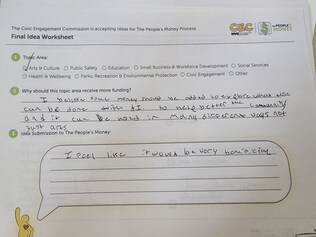 The Civic Engagement Commission is accepting ideas for The People's Money Process
Final Idea Worksheet
CEC
NYC
the PEOPLE'S MONEY
1 Topic Area:
Arts & Culture Public Safety Education Small Business & Workforce Development Social Services
Health & Wellbeing Parks, Recreation & Environmental Protection Civic Engagement Other
2 Why should this topic area receive more funding?
I believe that money should be added to explore what else
can be done with A.I. to help better the community
and it can be used in many different ways not
just arts
3 Idea Submission to The People's Money:
I feel like it would be very